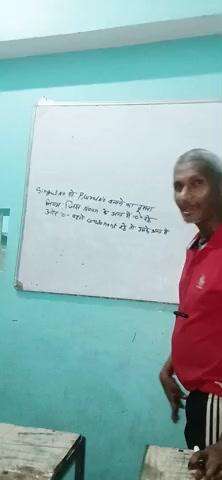 Singular से Plural बनाने का दूसरा
नियम जिस Noun के अन्त में 'o' हो
और 'o' पहले consonant हो तो उनके अन्त में